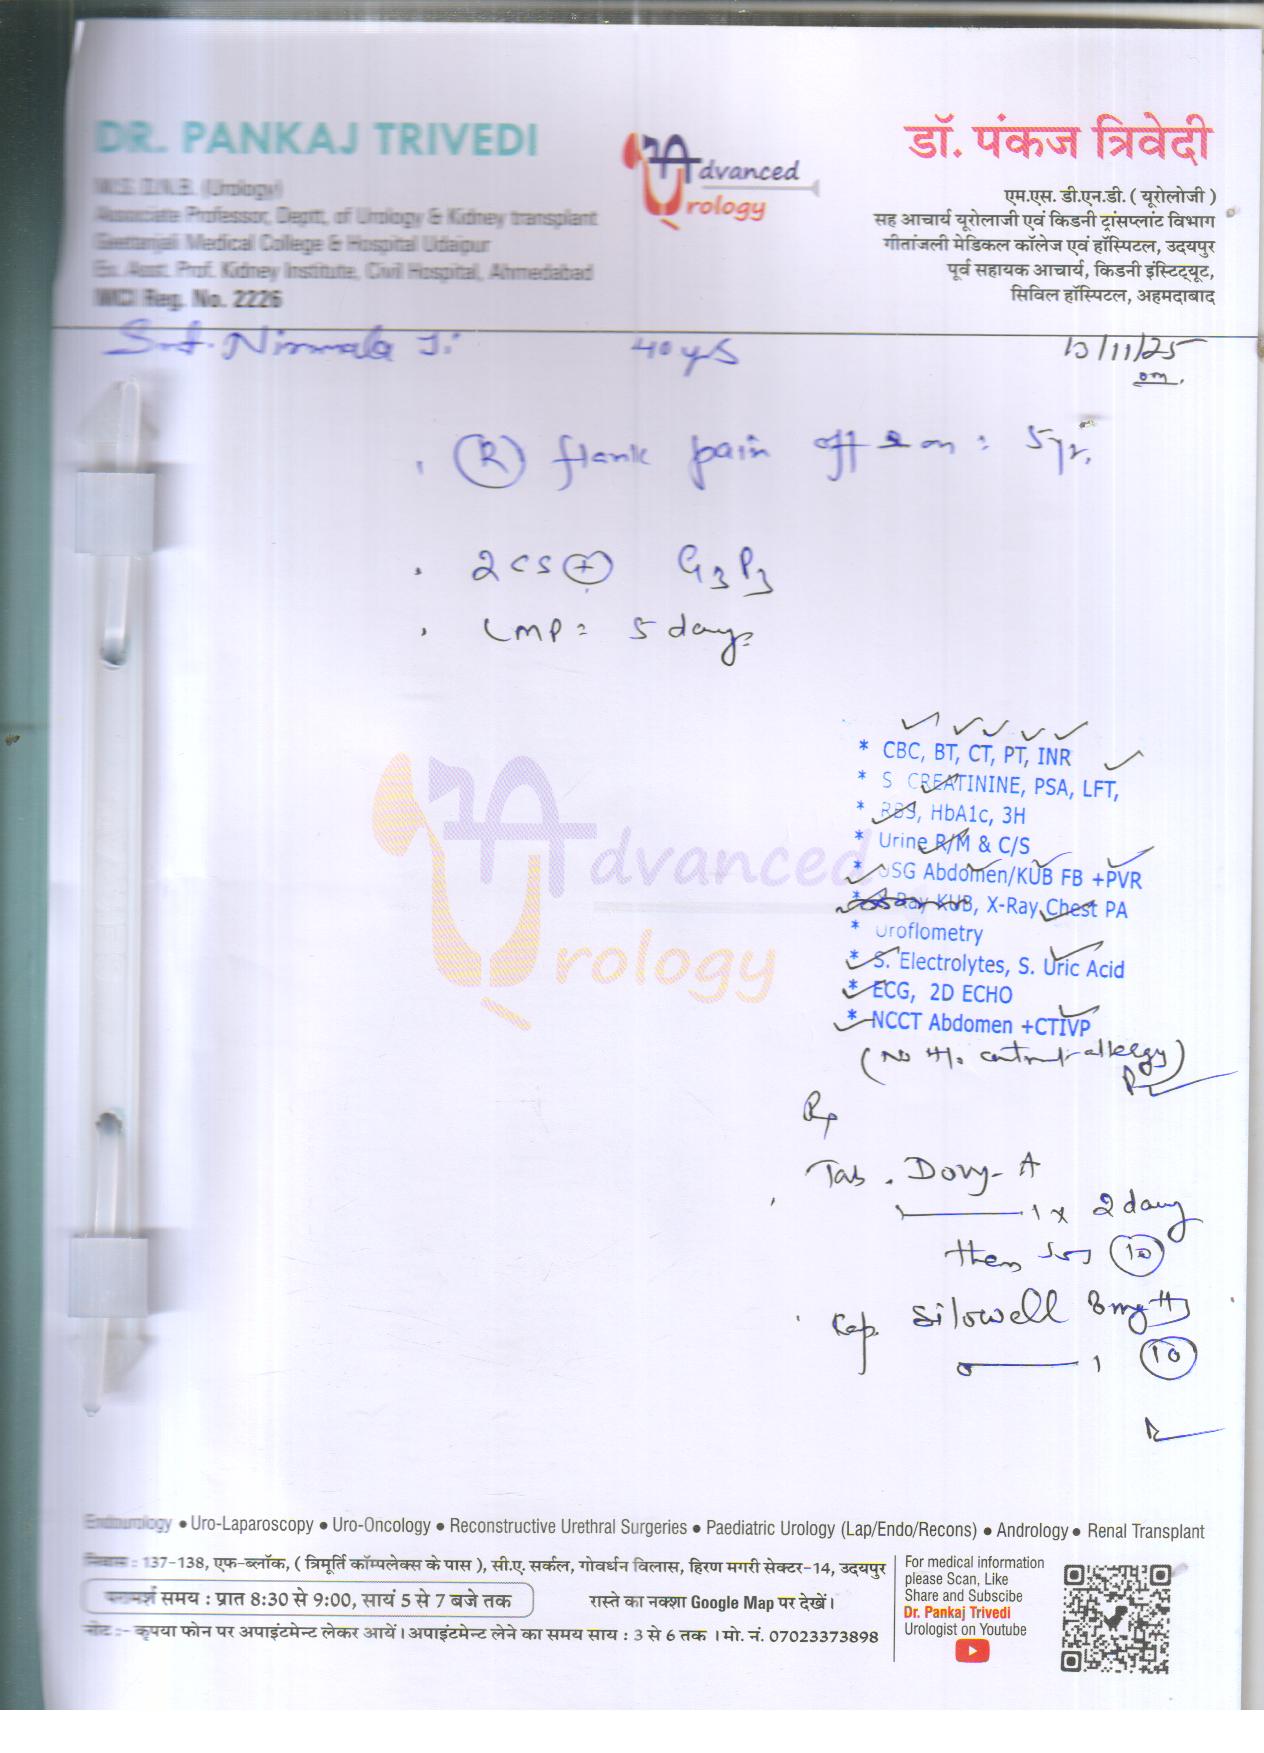 DR. PANKAJ TRIVEDI
M.S. D.N.B. (Urology)
Associate Professor, Deptt. of Urology & Kidney transplant
Geetanjali Medical College & Hospital Udaipur
Ex. Asst. Prof. Kidney Institute, Civil Hospital, Ahmedabad
MCI Reg. No. 2226
Advanced
Urology
डॉ. पंकज त्रिवेदी
एम.एस. डी.एन.डी. ( यूरोलोजी )
सह आचार्य यूरोलाजी एवं किडनी ट्रांसप्लांट विभाग
गीतांजली मेडिकल कॉलेज एवं हॉस्पिटल, उदयपुर
पूर्व सहायक आचार्य, किडनी इंस्टिट्यूट,
सिविल हॉस्पिटल, अहमदाबाद
Smt. Nirmala Ji 40 yrs 13/11/25
(R) flank pain off & on : 5 yr.
2 CS (+) G3P3
LMP = 5 days
* CBC, BT, CT, PT, INR
* S CREATININE, PSA, LFT,
* RBS, HbA1c, 3H
* Urine R/M & C/S
* USG Abdomen/KUB FB +PVR
* X-Ray KUB, X-Ray Chest PA
* Uroflometry
* S. Electrolytes, S. Uric Acid
* ECG, 2D ECHO
* NCCT Abdomen +CTIVP
(No H/o contrast allergy)
Advanced
Urology
Rx
Tab. Dovy-A
1 x 2 days
then sos (10)
Cap. Silowell 8mg
0 1 (10)
Endourology ● Uro-Laparoscopy ● Uro-Oncology ● Reconstructive Urethral Surgeries ● Paediatric Urology (Lap/Endo/Recons) ● Andrology ● Renal Transplant
निवास : 137-138, एफ-ब्लॉक, ( त्रिमूर्ति कॉम्पलेक्स के पास ), सी.ए. सर्कल, गोवर्धन विलास, हिरण मगरी सेक्टर-14, उदयपुर
परामर्श समय : प्रात 8:30 से 9:00, सायं 5 से 7 बजे तक रास्ते का नक्शा Google Map पर देखें।
नोट :- कृपया फोन पर अपाइंटमेन्ट लेकर आयें। अपाइंटमेन्ट लेने का समय साय : 3 से 6 तक । मो. नं. 07023373898
For medical information
please Scan, Like
Share and Subscibe
Dr. Pankaj Trivedi
Urologist on Youtube